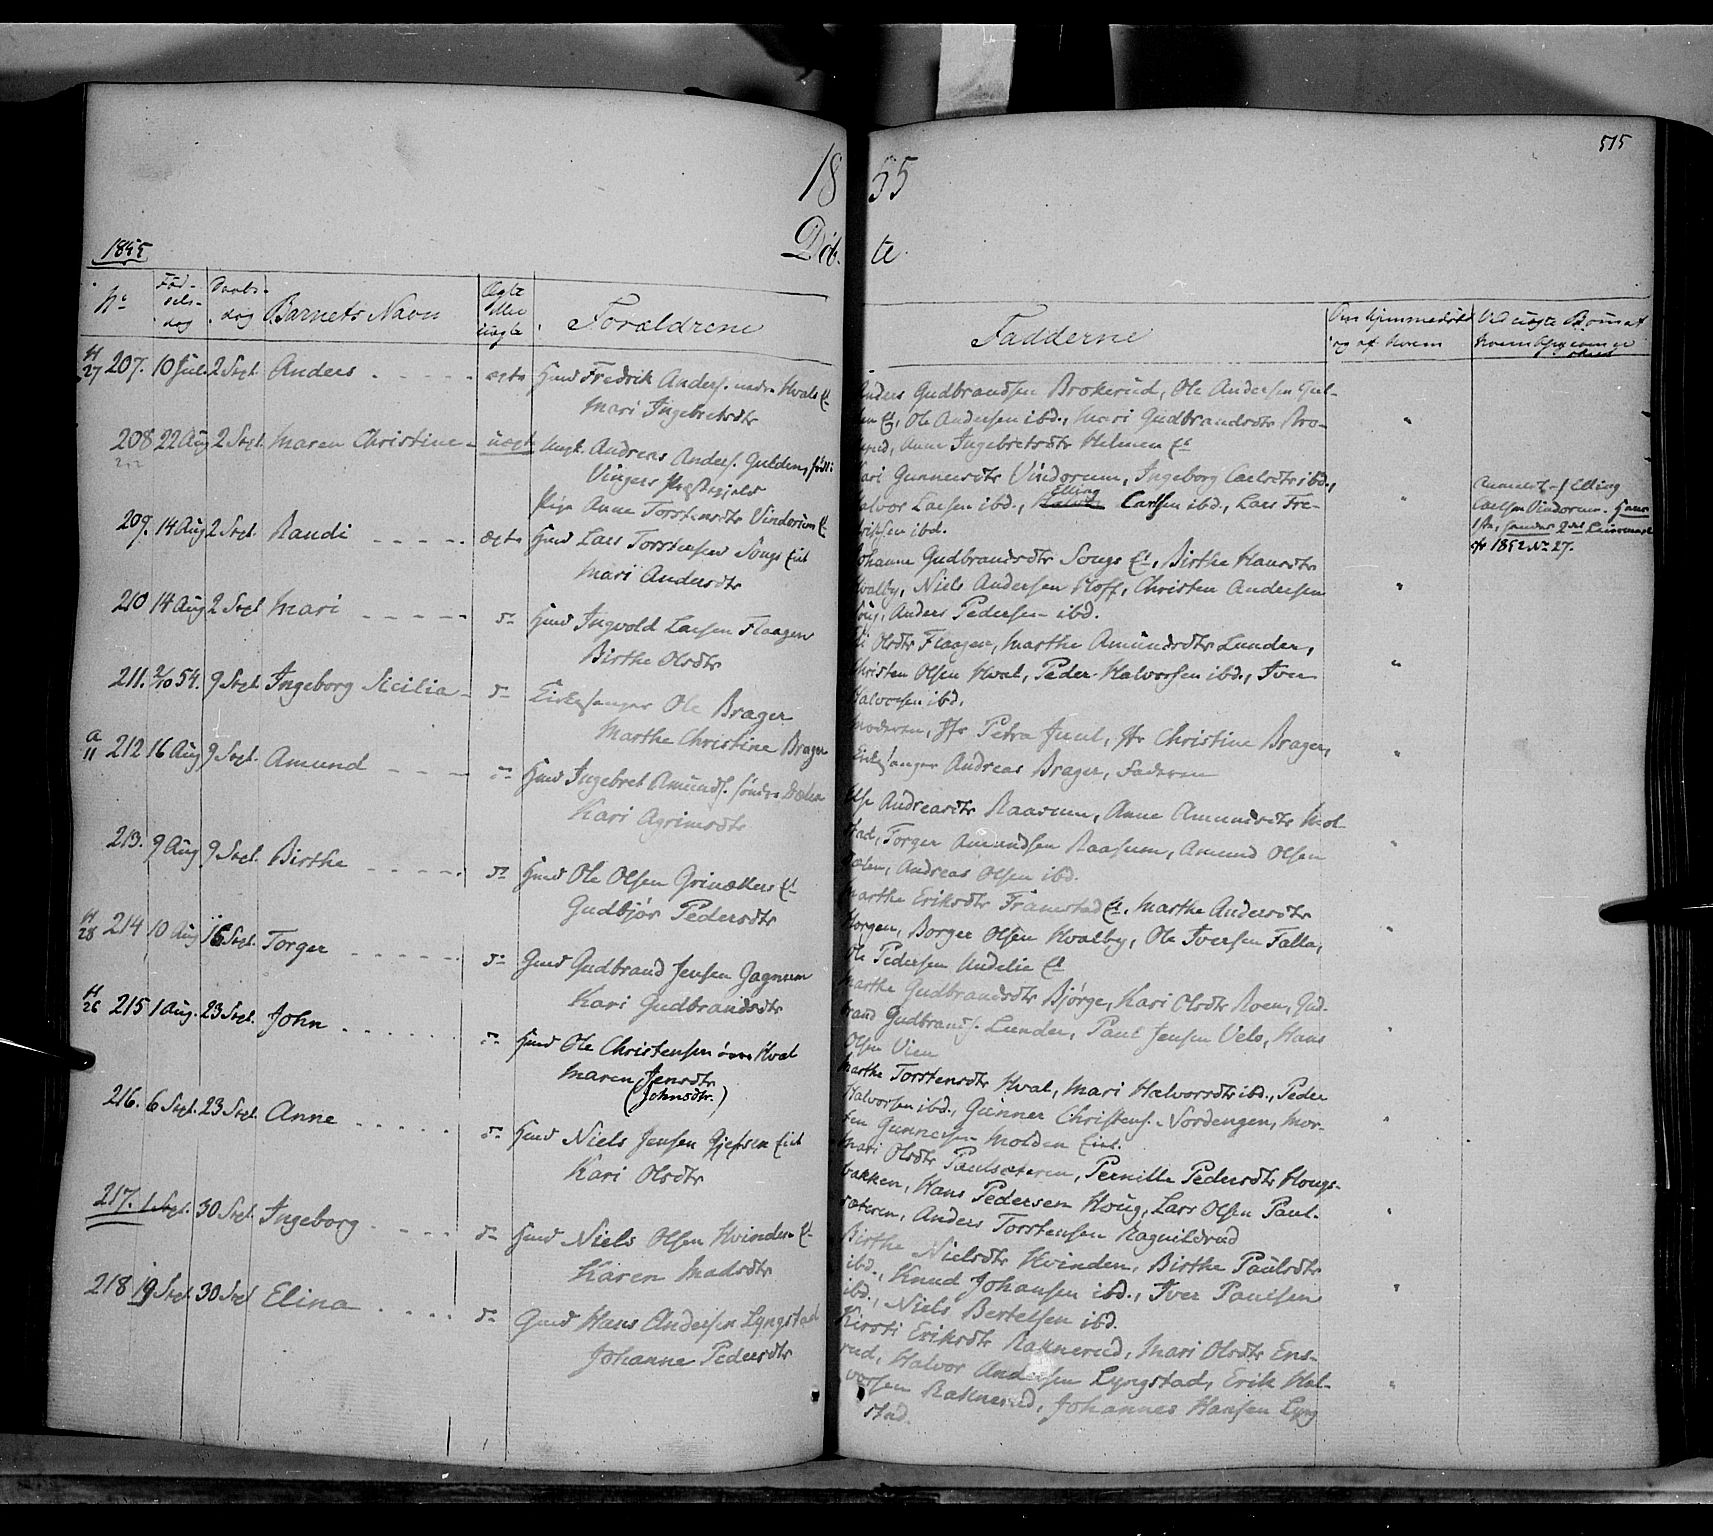 515
1855
Döbte
1855
No
Fød-
sels-
dag
Daabs-
dag
Barnets Navn
Ægte
eller
uægte
Forældrene
Fadderne
Om hjemmedøbt
og af hvem
Ved uægte Børn af
hvem
H
27 207. 10 Juli 2 Sept. Anders ægte Gmd Fredrik Anders. nedre Hvals Et
Mari Ingebretsdtr
Anders Gudbrandsen Brokerud, Ole Andersen Gul-
den Et, Ole Andersen ibd., Mari Gudbrandsdtr Bro-
kerud, Anne Ingebretsdtr Helmen Et
208 22 Aug 2 Sept. Maren Christine uægte Ungk. Andreas Anders. Gulden, født i
Vingers Præstegjeld
Pige Anne Torstensdtr Vindorum Et
Kari Gunnersdtr Vindorum, Ingeborg Carlsdtr ibd.,
Halvor Larsen ibd., Elling Carlsen ibd., Lars Fre-
driksen ibd.
Anmeldt af Elling
Carlsen Vindorum. Hans
1ste, hendes 2det Leiermaal
cfr 1852 No 27.
209. 14 Aug 2 Sept. Randi ægte Gmd Lars Torstensen Sougs Eiet
Mari Andersdtr
Johanne Gudbrandsdtr Sougs Et, Birthe Hansdtr
Hvalby, Niels Andersen Hoff, Christen Andersen
Soug, Anders Pedersen ibd.
210 14 Aug 2 Sept Mari do Gmd Ingvold Larsen Flaagen
Birthe Olsdtr
Olsdtr Flaagen, Marthe Amundsdtr Lunder,
Christen Olsen Hval, Peder Halvorsen ibd., Iver
Halvorsen ibd.
211. 2/10 54. 9 Sept. Ingeborg Sicilia do Kirkesanger Ole Brager
Marthe Christine Brager
Moderen, Jfr Petra Juul, Jfr Christine Brager,
Kirkesanger Andreas Brager, Faderen
A
11 212 16 Aug 9 Sept. Amund do Gmd Ingebret Amunds. søndre Dælen
Kari Agrimsdtr
Else Andreasdtr Raasum, Anne Amundsdtr Mol-
stad, Torger Amundsen Raasum, Amund Olsen
Dælen, Andreas Olsen ibd.
213. 9 Aug 9 Sept. Birthe do Gmd Ole Olsen Grinakers Et
Gudbjør Pedersdtr
Marthe Eriksdtr Framstad Et, Marthe Andersdtr
Horgen, Borger Olsen Hvalby, Ole Iversen Falla,
Ole Pedersen Undelie Et
H
28 214 10 Aug 16 Sept. Torger do Gmd Gudbrand Jensen Gagnum
Kari Gudbrandsdtr
Marthe Gudbrandsdtr Bjørge, Kari Olsdtr Roen, Gud-
brand Gudbrands. Lunder, Paul Jensen Velo, Hans
Olsen Vien
H
26 215 1 Aug. 23 Sept. John do Gmd Ole Christensen övre Hval
Maren Jensdtr
(Johnsdtr.)
Marthe Torstensdtr Hval, Mari Halvorsdtr ibd., Peder
Halvorsen ibd., Gunner Christens. Nordengen, Mor-
ten Gunnersen Molden Eiet.
216. 6 Sept. 23 Sept. Anne do Gmd Niels Jensen Gjefsen Eiet
Kari Olsdtr
Mari Olsdtr Paulsæteren, Pernille Pedersdtr Hougs-
bakken, Hans Pedersen Houg, Lars Olsen Paul-
sæteren, Anders Torstensen Ragnildrud
217. 1 Sept. 30 Sept. Ingeborg do Gmd Niels Olsen Hvinden Et
Karen Madsdtr
Birthe Nielsdtr Hvinden, Birthe Paulsdtr
ibd., Knud Johansen ibd., Iver Paulsen
ibd., Niels Bertelsen ibd.
218 19 Sept 30 Sept Elina do Gmd Hans Andersen Lyngstad
Johanne Pedersdtr
Kirsti Eriksdtr Raknerud, Mari Olsdtr Ens-
rud, Halvor Andersen Lyngstad, Erik Hal-
vorsen Raknerud, Johannes Hansen Lyng
stad.